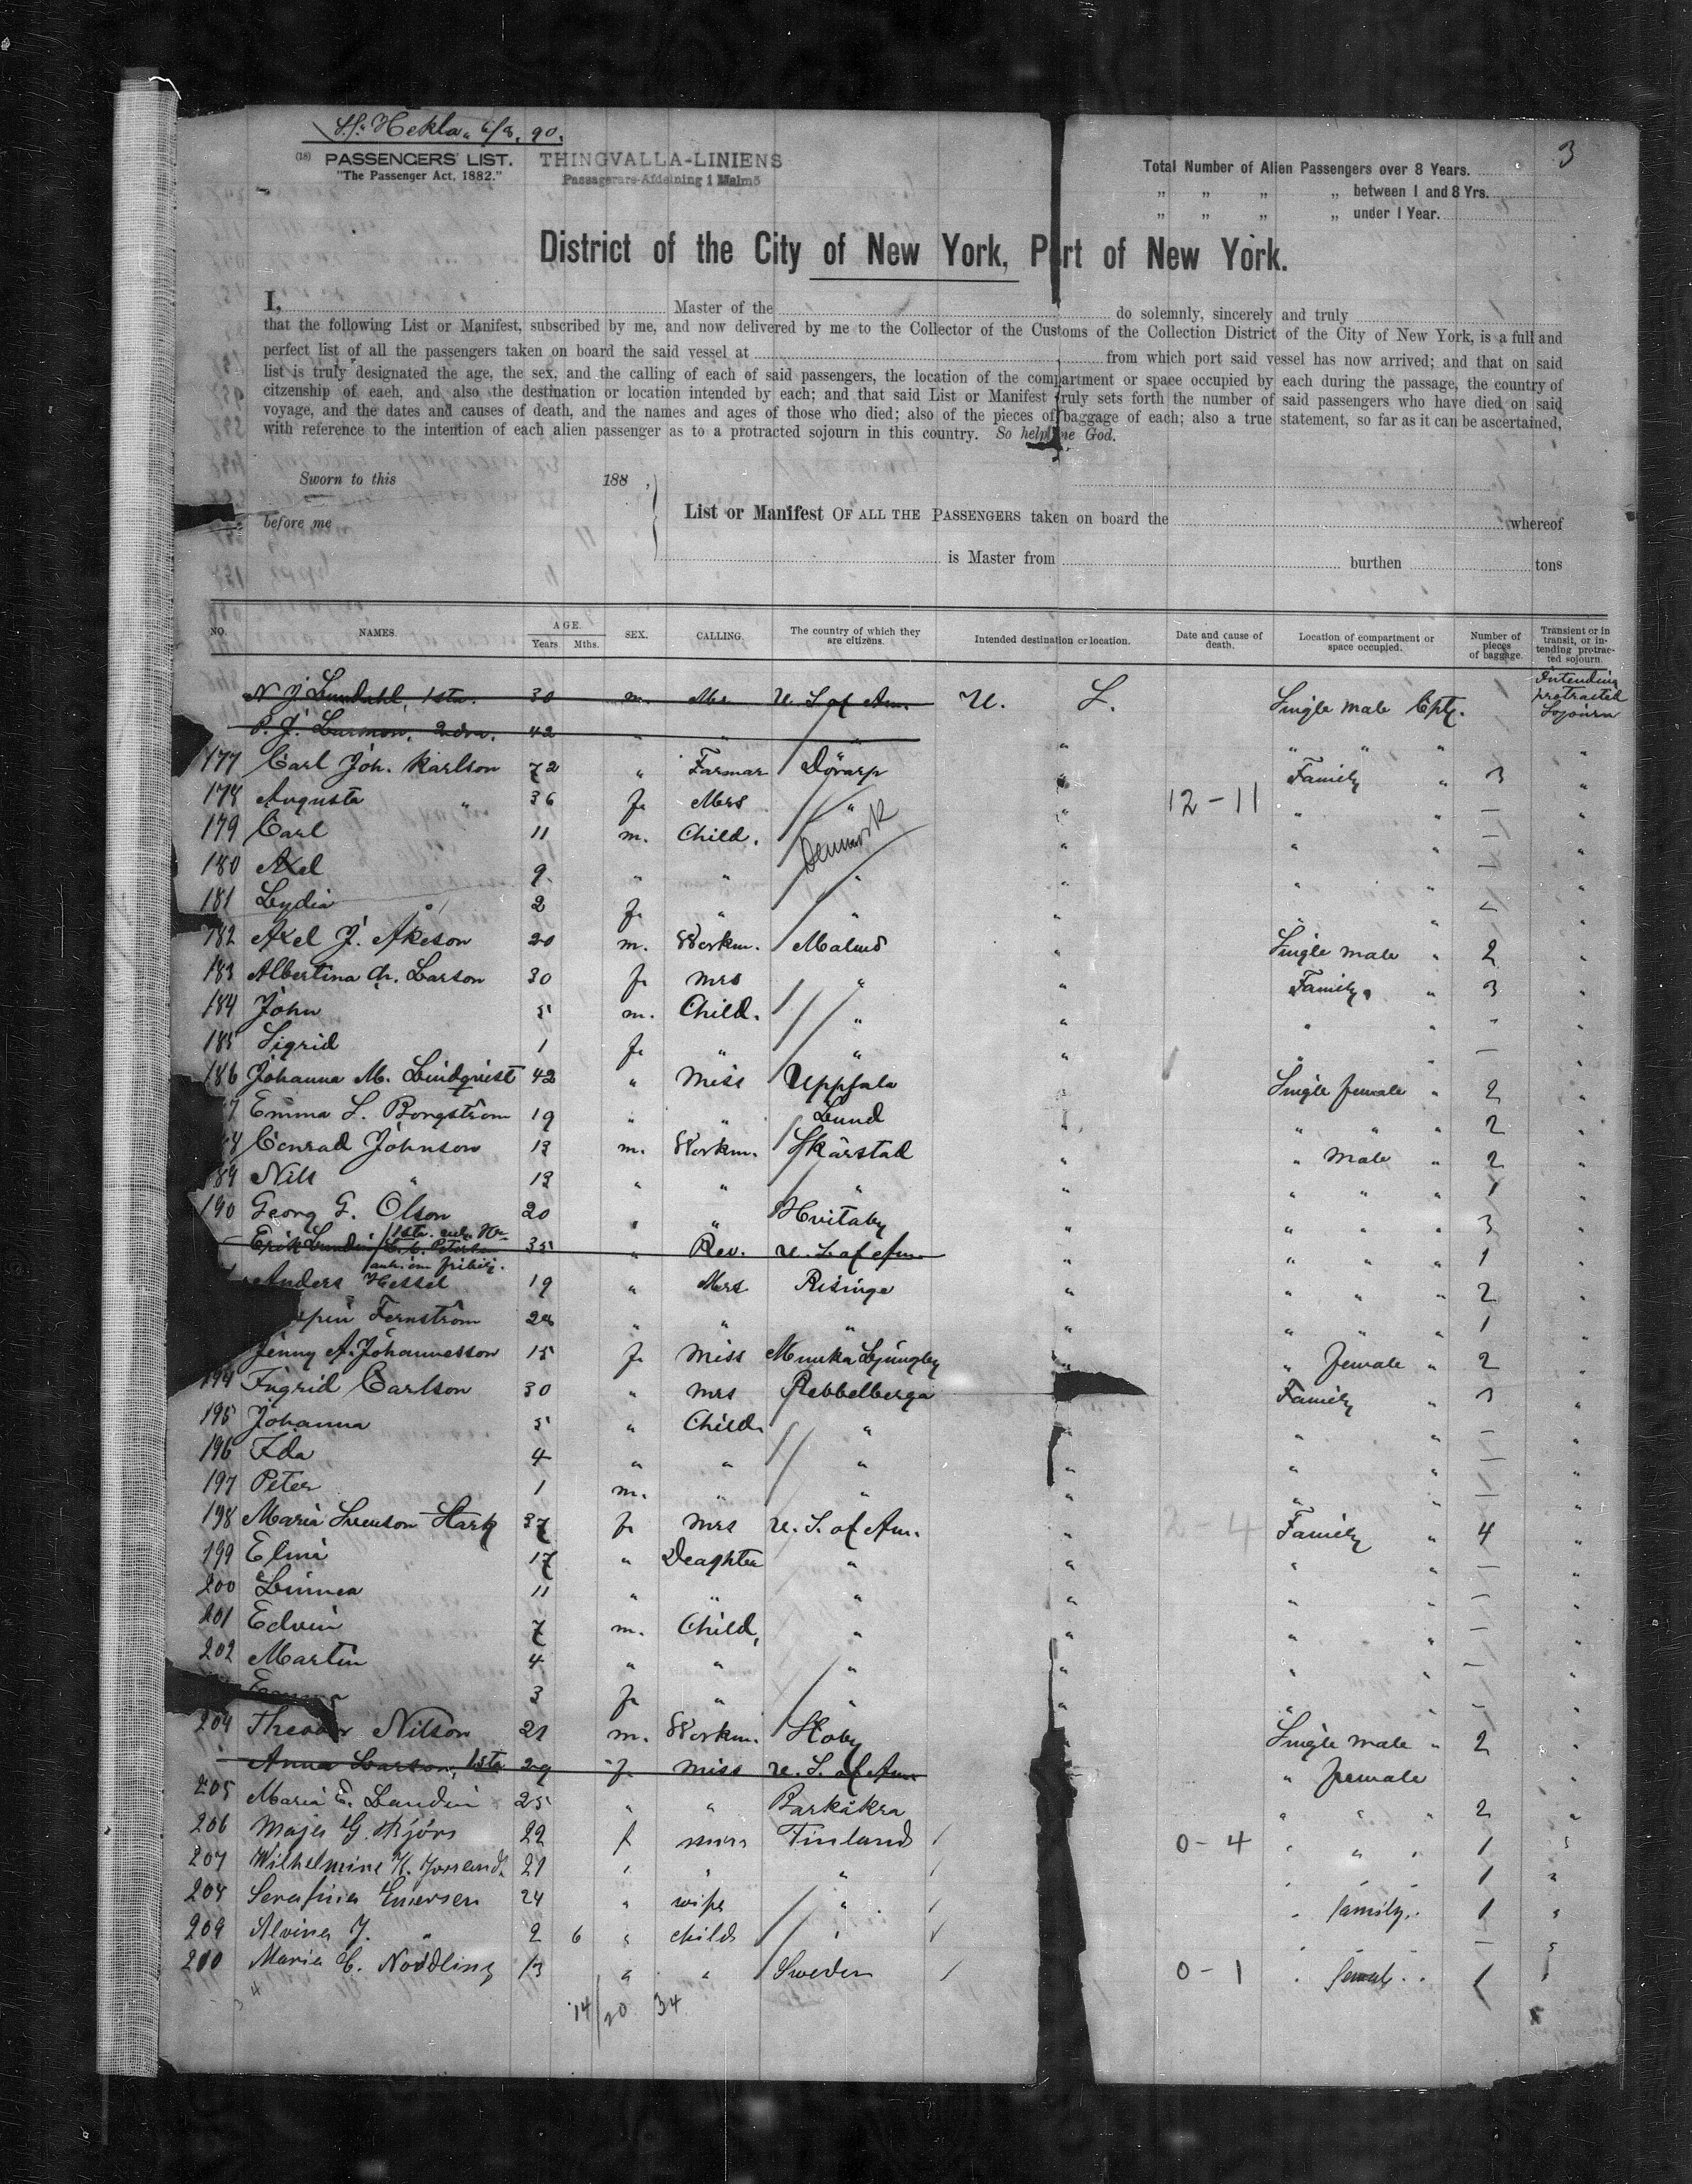 S/S. "Hekla" 6/3. 90.
3
(18) PASSENGERS' LIST. THINGVALLA-LINIENS
"The Passenger Act, 1882." Passagerare-Afdelning i Malmö
Total Number of Alien Passengers over 8 Years.
" " " " between 1 and 8 Yrs.
" " " " under 1 Year.
District of the City of New York, Port of New York.
I, Master of the do solemnly, sincerely and truly
that the following List or Manifest, subscribed by me, and now delivered by me to the Collector of the Customs of the Collection District of the City of New York, is a full and
perfect list of all the passengers taken on board the said vessel at from which port said vessel has now arrived; and that on said
list is truly designated the age, the sex, and the calling of each of said passengers, the location of the compartment or space occupied by each during the passage, the country of
citzenship of each, and also the destination or location intended by each; and that said List or Manifest truly sets forth the number of said passengers who have died on said
voyage, and the dates and causes of death, and the names and ages of those who died; also of the pieces of baggage of each; also a true statement, so far as it can be ascertained,
with reference to the intention of each alien passenger as to a protracted sojourn in this country. So help me God.
Sworn to this 188 ,
before me
List or Manifest OF ALL THE PASSENGERS taken on board the whereof
is Master from burthen tons
NO. NAMES. AGE. Years. Mths. SEX. CALLING. The country of which they are citizens. Intended destination or location. Date and cause of death. Location of compartment or space occupied. Number of pieces of baggage. Transient or in transit, or intending protracted sojourn.
N J Lundahl, 1sta. 30 m. Mr. U. S. of Am. U. S. Single male Cpt. Intending protracted Sojourn
P. J. Larmon, 2dra. 42 " " " " " " " "
177 Carl Joh. Karlson 72 " Farmar Dörarp " Family " 3 "
178 Augusta " 36 f. Mrs " " 12-11 " " — "
179 Carl 11 m. Child. Denmark " " " — "
180 Axel 9 " " " " " " — "
181 Lydia 2 f. " " " " " — "
182 Axel J. Akeson 20 m. Workm. Malmö " Single male " 2 "
183 Albertina Ch. Larson 30 f. Mrs " " Family " 3 "
184 John 5 m. Child. " " " " - "
185 Sigrid 1 f. " " " " " — "
186 Johanna M. Lindqvist 42 " Miss Uppsala Single female " 2 "
7 Emma S. Borgström 19 " " Lund " " " 2 "
8 Conrad Johnson 13 m. Workm. Skärstad " " male " 2 "
189 Nils " 13 " " " " " " " 1 "
190 Georg G. Olson 20 " " Hvitaby " " " " 3 "
Erik Lundin 35 " Rev. U. S. of Am. " " " 1 "
Anders Hessel 19 " Mrs Risinge " " " " 2 "
Fernström " " " " " " " 1 "
Jenny A. Johannesson 15 f. Miss Munka Ljungby " female " 2 "
194 Ingrid Carlson 30 " Mrs Rebbelberga Family " 3 "
195 Johanna 5 " Child. " " " — "
196 Ida 4 " " " " " " — "
197 Peter 1 m. " " " " " — "
198 Maria Swenson Hark 37 f. Mrs U. S. of Am. " 2-4 Family " 4 "
199 Elma 17 " Deaghter " " " " — "
200 Linnea 11 " " " " " " — "
201 Edvin 7 m. Child, " " " " — "
202 Martin 4 " " " " " " — "
Emma 3 f. " " " " " — "
204 Theodor Nilson 21 m. Workm. Hoby Single male " 2 "
Anna Larson, 1sta 29 f. Miss U. S. of Am. " female "
205 Maria E. Landin 25 " " Barkåkra " " " 2 "
206 Majs G. 22 f Finland 0-4 " " " 1 "
207 Wilhelmine K. 21 " " " " " 1 "
208 Serafina Emersen 24 " wife " " family. 1 "
209 Alvina J. " 2 6 " child " — "
210 Maria C. Nordling 13 " " Sweden 0-1 " female 1 "
14/20 34